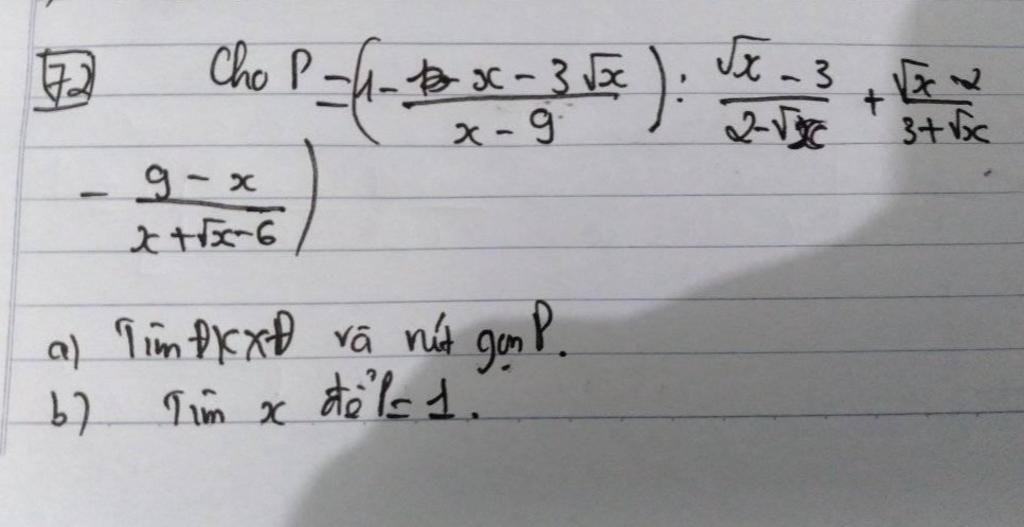 72 Cho P = (1 - x - 3√x / x - 9) : √x - 3 / 2 - √x + √x - 2 / 3 + √x
- 9 - x / x + √x - 6)
a) Tìm ĐKXĐ và rút gọn P.
b) Tìm x để P = 1.